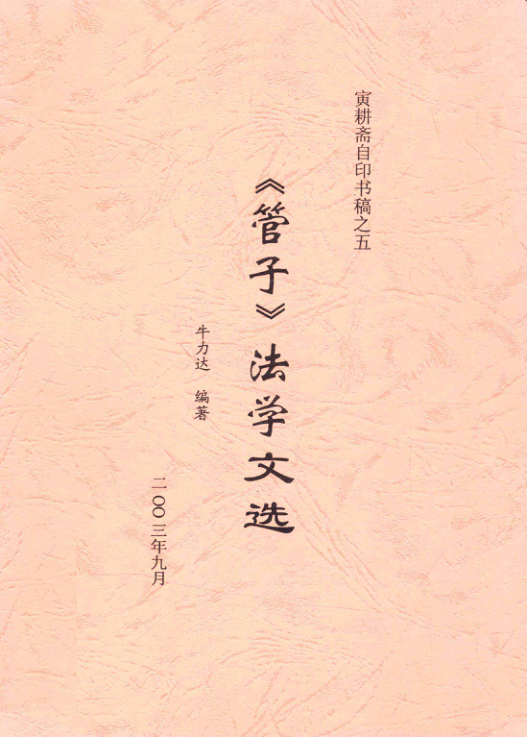 寅耕斋自印书稿之五
《管子》法学文选
牛力达 编著
二〇〇三年九月